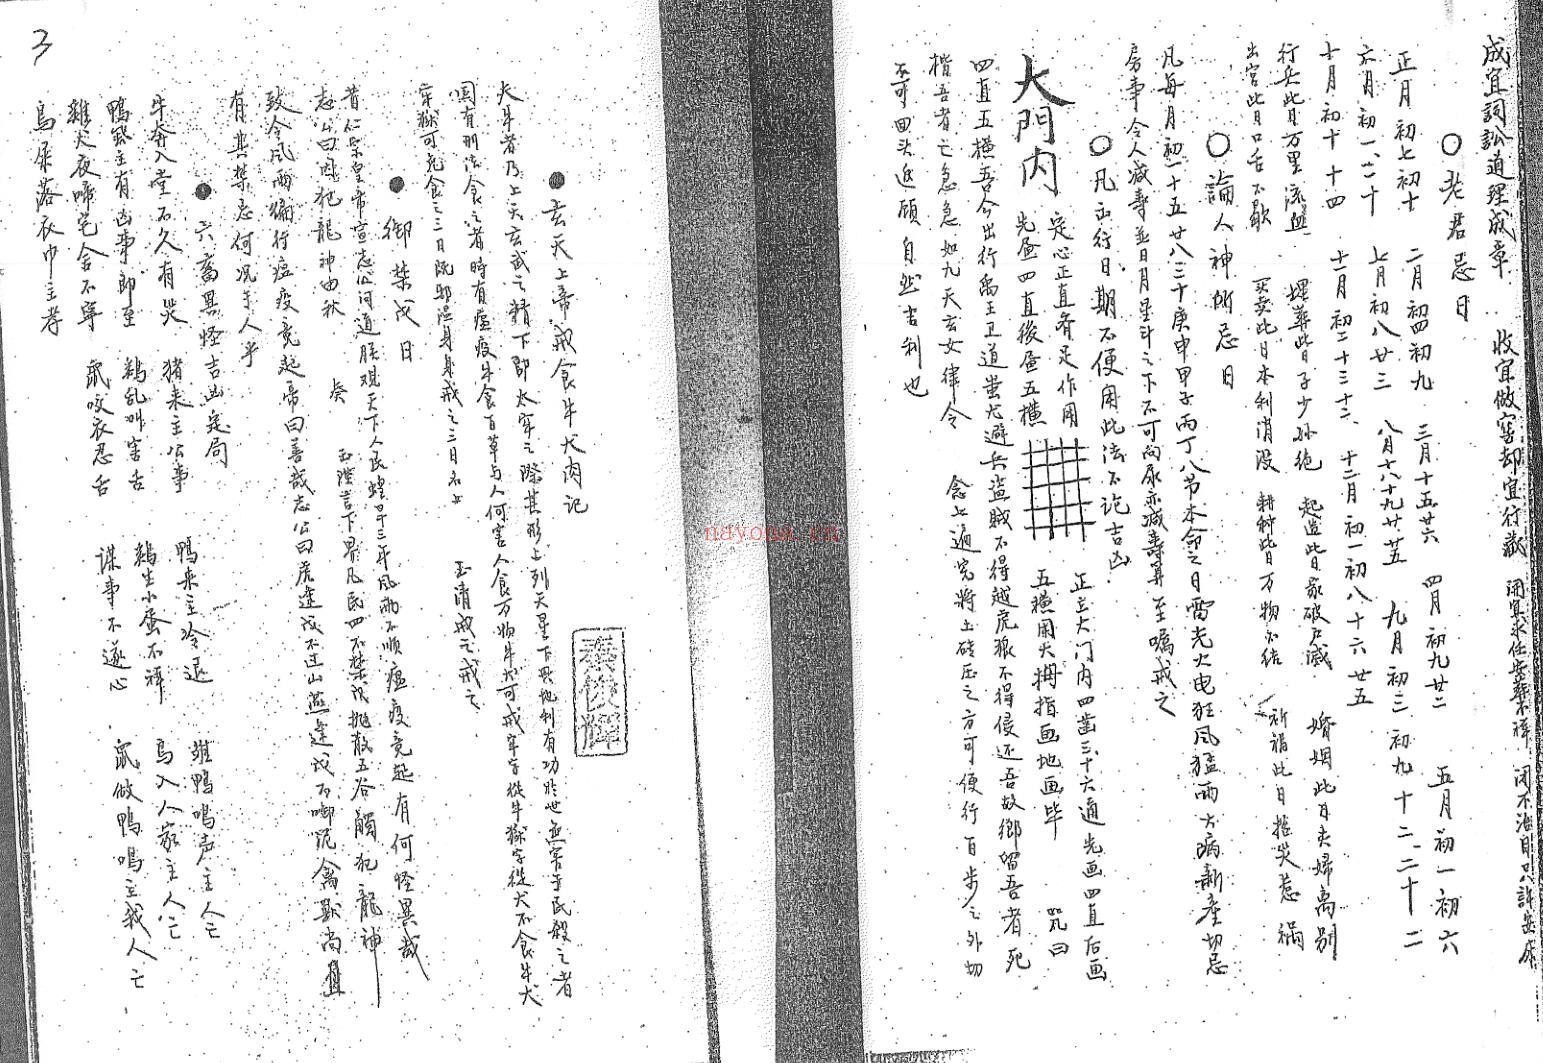 成宜詞訟道理成章 收宜做窖却宜行藏 開宜求仕安葬不祥 閉不治目只許安床
○老君忌日
正月初七初十 二月初四初九 三月十五廿六 四月初九廿二 五月初一初六
六月初一、二十 七月初八廿三 八月十八十九廿廿五 九月初三初九十二、二十二
十月初十十四 十一月初二十三十二、 十二月初一初八十六廿五
行兵此日万里流血 埋葬此日子少孙绝 起造此日家破户滅 婚姻此日夫婦离别
出宮此日口舌不歇 买卖此日本利消没 耕种此日万物不结 祈福此日招災惹禍
○論人神所忌日
凡每月初一十五廿八三十庚申甲子丙丁八节本命之日雷光火电狂风猛雨大病新產切忌
房事令人减寿並日月星斗之下不可向尿亦减寿算至嘱戒之
○凡出行日期不便用此法不论吉凶
大門內 定心正直齐足作用 正立大门内四齒三十六通先画四直后画
先画四直後画五横 五横用大拇指画地画毕 咒曰
四直五横吾今出行禹王卫道蚩尤避兵盗贼不得越虎狼不得侵还吾故鄉當吾者死
楷吾者亡急急如九天玄女律令 念七遍完將土砖压之方可便行百步之外切
不可回头返顾自然吉利也
●玄天上帝戒食牛犬肉记
天斗者乃上天玄武之精下即太牢之際其形上列天星下毗地利有功於世無害于民殺之者
國有刑法食之者時有瘟疫牛食百草与人何害人食万物牛犬可戒牢字從牛獄字從犬不食牛犬
牢獄可免食之三日既邪温身身戒之三日不止 玉清戒之戒之
●御禁戊日
昔仁宗皇帝宣志公问道朕观天下人民蝗旱三年风雨不顺瘟疫竞起有何怪異哉
志公曰因犯龍神由秋 奏 玉陛言下界凡民四不禁戊抛散五谷觸犯龍神
致令风雨偏行瘟疫竞起帝曰善哉志公曰虎逢戊不过山燕逢戊不啣泥禽獸尚且
有其禁忌何况于人乎
●六畜異怪吉凶定局
牛奔入堂不久有哭 猪来主公事 鴨来主冷退 雄鴨鳴声主人亡
鴨 主有凶事即至 鷄乱叫害舌 鷄生小蛋不祥 鳥入人家主人亡
雞犬夜啼宅舍不寧 鼠咬衣忍舌 謀事不遂心 鼠做鴨鳴主我人亡
鳥屎落衣巾主孝
秦俊輝
3
nayona.cn